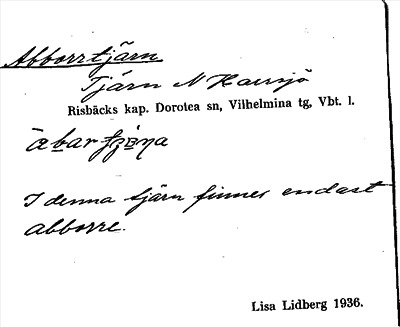 Abborrtjärn
Tjärn N Harrsjö
Risbäcks kap. Dorotea sn, Vilhelmina tg, Vbt. l.
I denna tjärn finnes endast
abborre.
Lisa Lidberg 1936.